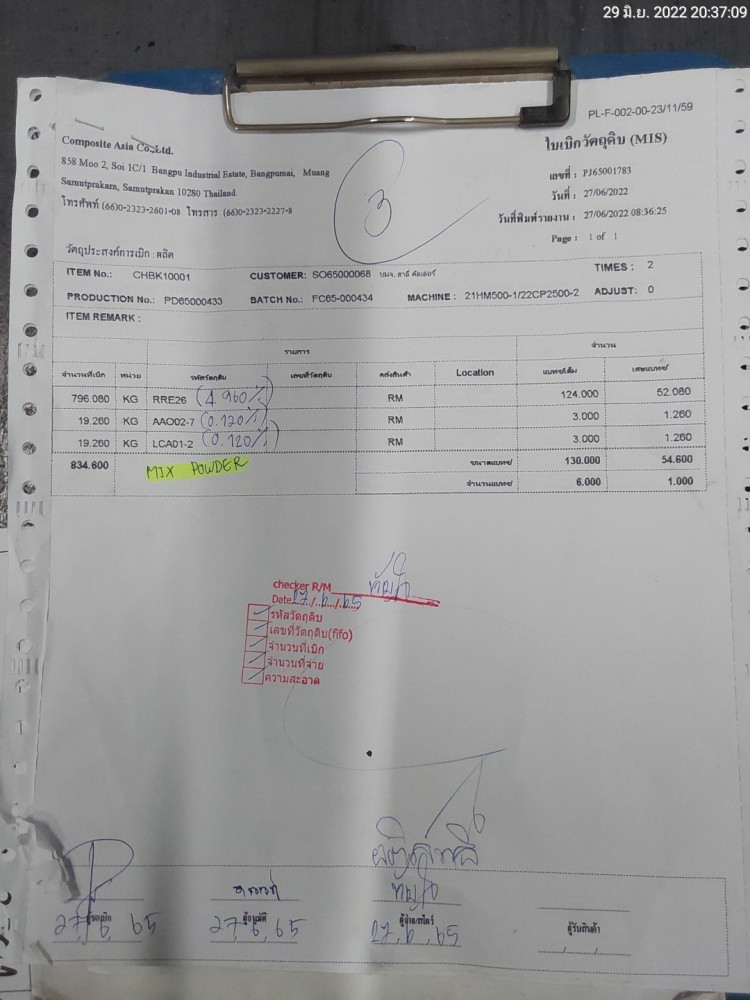 29 มิ.ย. 2022 20:37:09
PL-F-002-00-23/11/59
ใบเบิกวัตถุดิบ (MIS)
Composite Asia Co.,Ltd.
858 Moo 2, Soi 1C/1 Bangpu Industrial Estate, Bangpumai, Muang
Samutprakarn, Samutprakan 10280 Thailand.
โทรศัพท์ (66)0-2323-2601-08 โทรสาร (66)0-2323-2227-8
3
เลขที่ : PJ65001783
วันที่ : 27/06/2022
วันที่พิมพ์รายงาน : 27/06/2022 08:36:25
Page : 1 of 1
วัตถุประสงค์การเบิก : ผลิต
ITEM No.: CHBK10001 CUSTOMER: SO65000068 บมจ. สาลี่ คัลเล่อร์ TIMES : 2
PRODUCTION No.: PD65000433 BATCH No.: FC65-000434 MACHINE : 21HM500-1/22CP2500-2 ADJUST: 0
ITEM REMARK :
รายการ จำนวน
จำนวนที่เบิก หน่วย รหัสวัตถุดิบ เลขที่วัตถุดิบ คลังสินค้า Location แบทช์เต็ม เศษแบทช์
796.080 KG RRE26 (4.960%) RM 124.000 52.080
19.260 KG AAO02-7 (0.120%) RM 3.000 1.260
19.260 KG LCA01-2 (0.120%) RM 3.000 1.260
834.600 MIX POWDER ขนาดแบทช์ 130.000 54.600
จำนวนแบทช์ 6.000 1.000
checker R/M
Date 27/6/65
รหัสวัตถุดิบ
เลขที่วัตถุดิบ(fifo)
จำนวนที่เบิก
จำนวนที่จ่าย
ความสะอาด
ผู้ขอเบิก ผู้อนุมัติ ผู้จ่าย/สโตร์ ผู้รับสินค้า
27, 6, 65 27, 6, 65 27, 6, 65